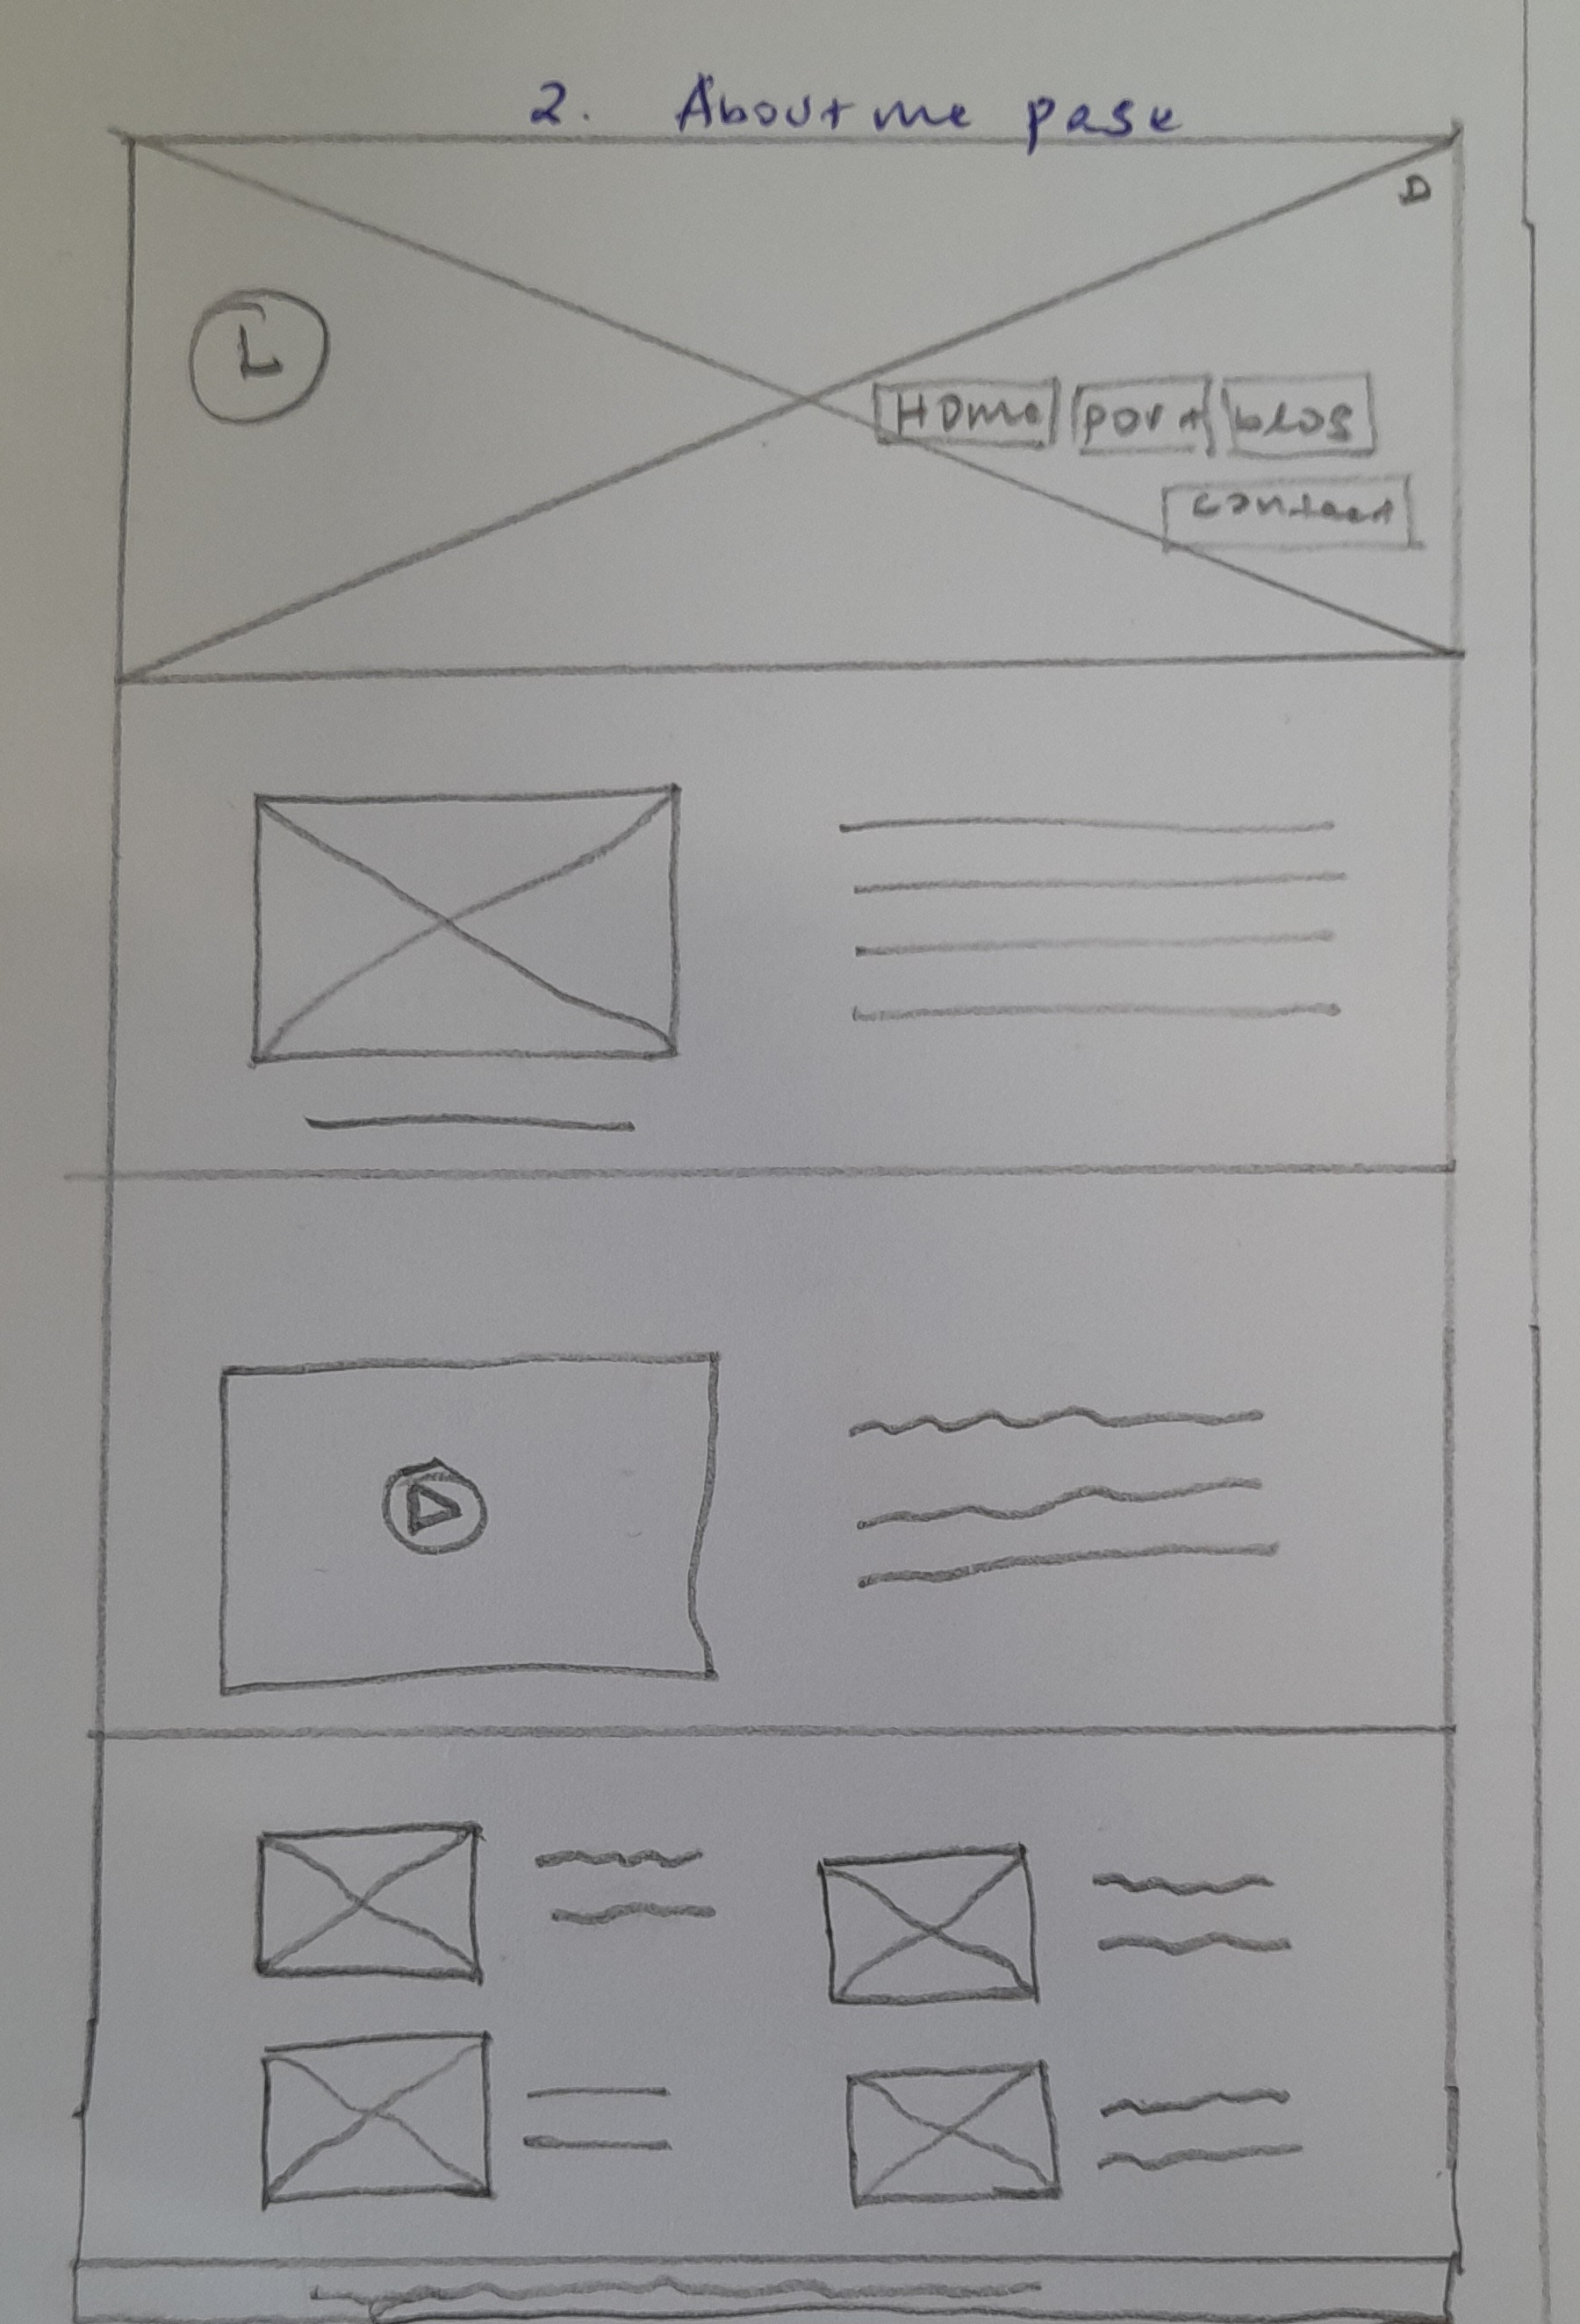 2. About me page
D
L
Home port blog
contact